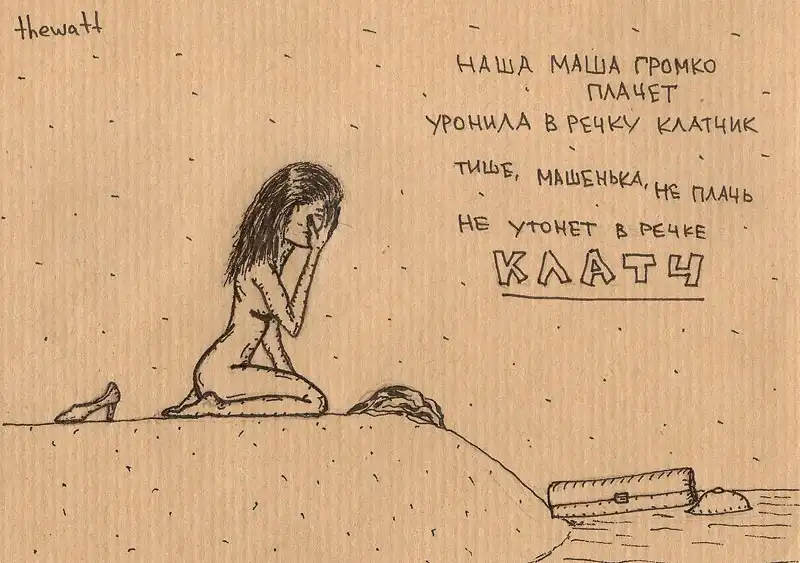 thewatt
НАША МАША ГРОМКО
ПЛАЧЕТ
УРОНИЛА В РЕЧКУ КЛАТЧИК
ТИШЕ, МАШЕНЬКА, НЕ ПЛАЧЬ
НЕ УТОНЕТ В РЕЧКЕ
КЛАТЧ